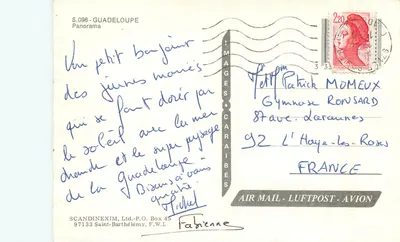 S.096 - GUADELOUPE
Panorama
Un petit bonjour
des jeunes mariés
qui se font dorer par
le soleil avec la mer
chaude et le super paysage
de la Guadeloupe -
Bisous à vous
quatre.
Michel
Fabienne
SCANDINEXIM, Ltd.-P.O. Box 45
97133 Saint-Barthélémy, F.W.I.
IMAGES • CARAIBES
2,20
Patrick MOMEUX
Gymnase RONSARD
87 ave Laraunes
92 L'Haye-les-Roses
FRANCE
AIR MAIL - LUFTPOST - AVION